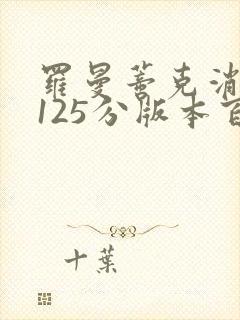 羅曼蒂克消
125分版本百
十葉